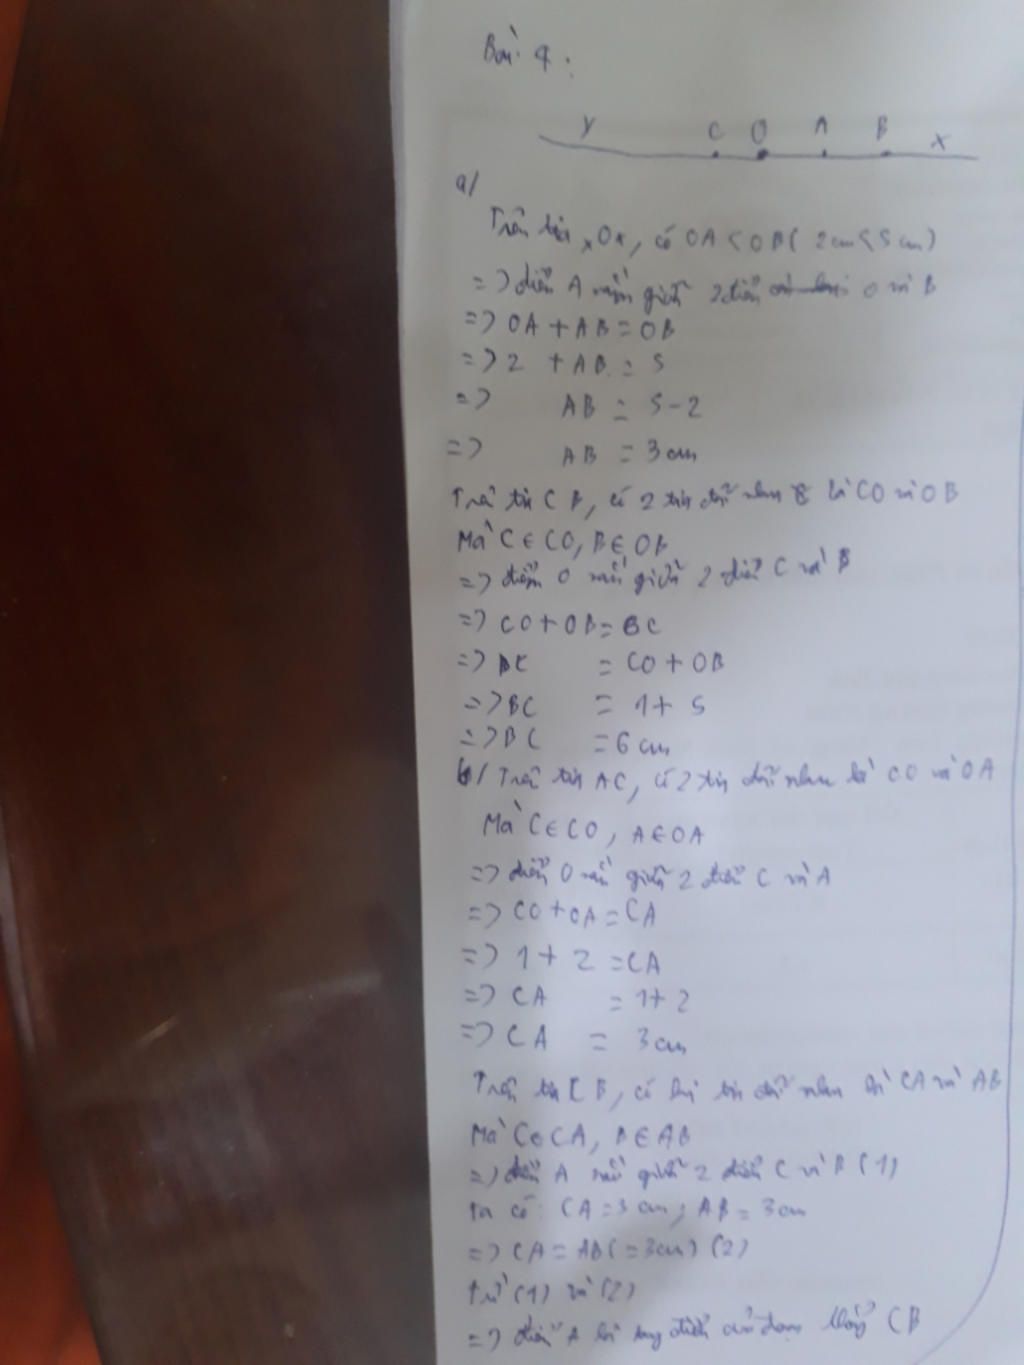 Bài 4:
y C O A B x
a/
Trên tia Ox, có OA < OB ( 2cm < 5 cm)
=> điểm A nằm giữa 2 điểm O và B
=> OA + AB = OB
=> 2 + AB = 5
=> AB = 5-2
=> AB = 3 cm
Trên tia CB, có 2 tia đối nhau là CO và OB
Mà C ∈ CO, B ∈ OB
=> điểm O nằm giữa 2 điểm C và B
=> CO + OB = BC
=> BC = CO + OB
=> BC = 1 + 5
=> BC = 6 cm
b/ Trên tia AC, có 2 tia đối nhau là CO và OA
Mà C ∈ CO, A ∈ OA
=> điểm O nằm giữa 2 điểm C và A
=> CO + OA = CA
=> 1 + 2 = CA
=> CA = 1+ 2
=> CA = 3 cm
Trên tia CB, có hai tia đối nhau là CA và AB
Mà C ∈ CA, B ∈ AB
=> điểm A nằm giữa 2 điểm C và B (1)
Ta có: CA = 3 cm; AB = 3 cm
=> CA = AB ( = 3cm) (2)
Từ (1) và (2)
=> điểm A là trung điểm của đoạn thẳng CB